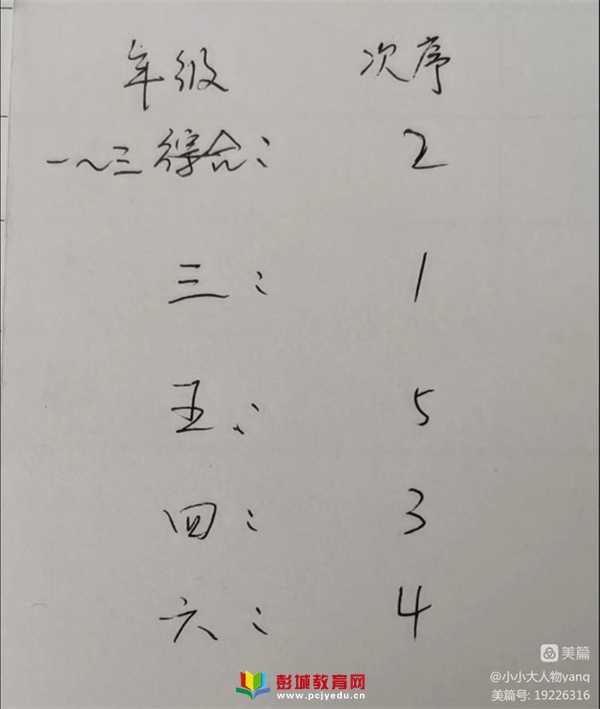 年级 次序
一~三综合: 2
三: 1
五: 5
四: 3
六: 4
美篇
@小小大人物yang
美篇号: 19226316
彭城教育网
www.pcjyedu.cn